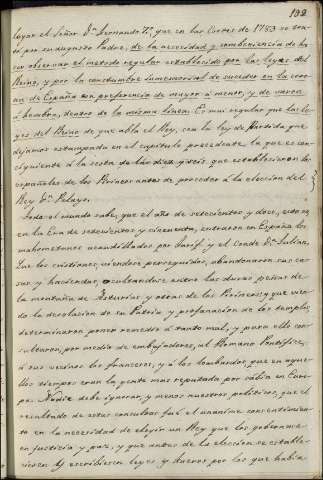 192
loyar el Señor Dn. Fernando 7º, que en las Cortes de 1789 se tra-
tó por su augusto Padre, de la necesidad y conbeniencia de ha-
cer observar el metodo regular establecido por las leyes del
Reino, y por la constumbre inmemorial de suceder en la coro-
na de España con preferencia de mayor á menor, y de varon
á hembra, dentro de la misma linea. Es mui regular que las le-
yes del Reino de que abla el Rey, sea la ley de Partida que
dejamos estampada en el capitulo precedente, la que es con-
siguiente á la sesta de las diez y seis, que establecieron los
españoles de los Pirineos antes de proceder á la eleccion del
Rey Dn. Pelayo.
Todo el mundo sabe, que el año de setecientos y doce, esto es
en la Era de setecientos y cincuenta, entraron en España los
mahometanos acaudillados por Tarif y el Conde Dn. Julian.
Que los cristianos, viendose perseguidos, abandonaron sus ca-
sas y haciendas, ocultandose entre las duras peñas de
la montaña de Asturias y otras de los Pirineos; y que vien-
do la desolacion de su Patria y profanacion de los templos,
determinaron poner remedio á tanto mal, y para ello con-
sultaron, por medio de embajadores, al Romano Pontifice,
á sus vecinos los franceses, y á los lombardos que en aque-
llos tiempos eran la gente mas reputada por sábia en Euro-
pa. Nadie debe ignorar, y menos nuestros politicos, que el
resultado de estas consultas fué el unanime consentimien-
to en la necesidad de elejir un Rey que los gobernase
en justicia y paz, y que antes de la eleccion se estable-
ciesen y escribiesen leyes y fueros por los que habia